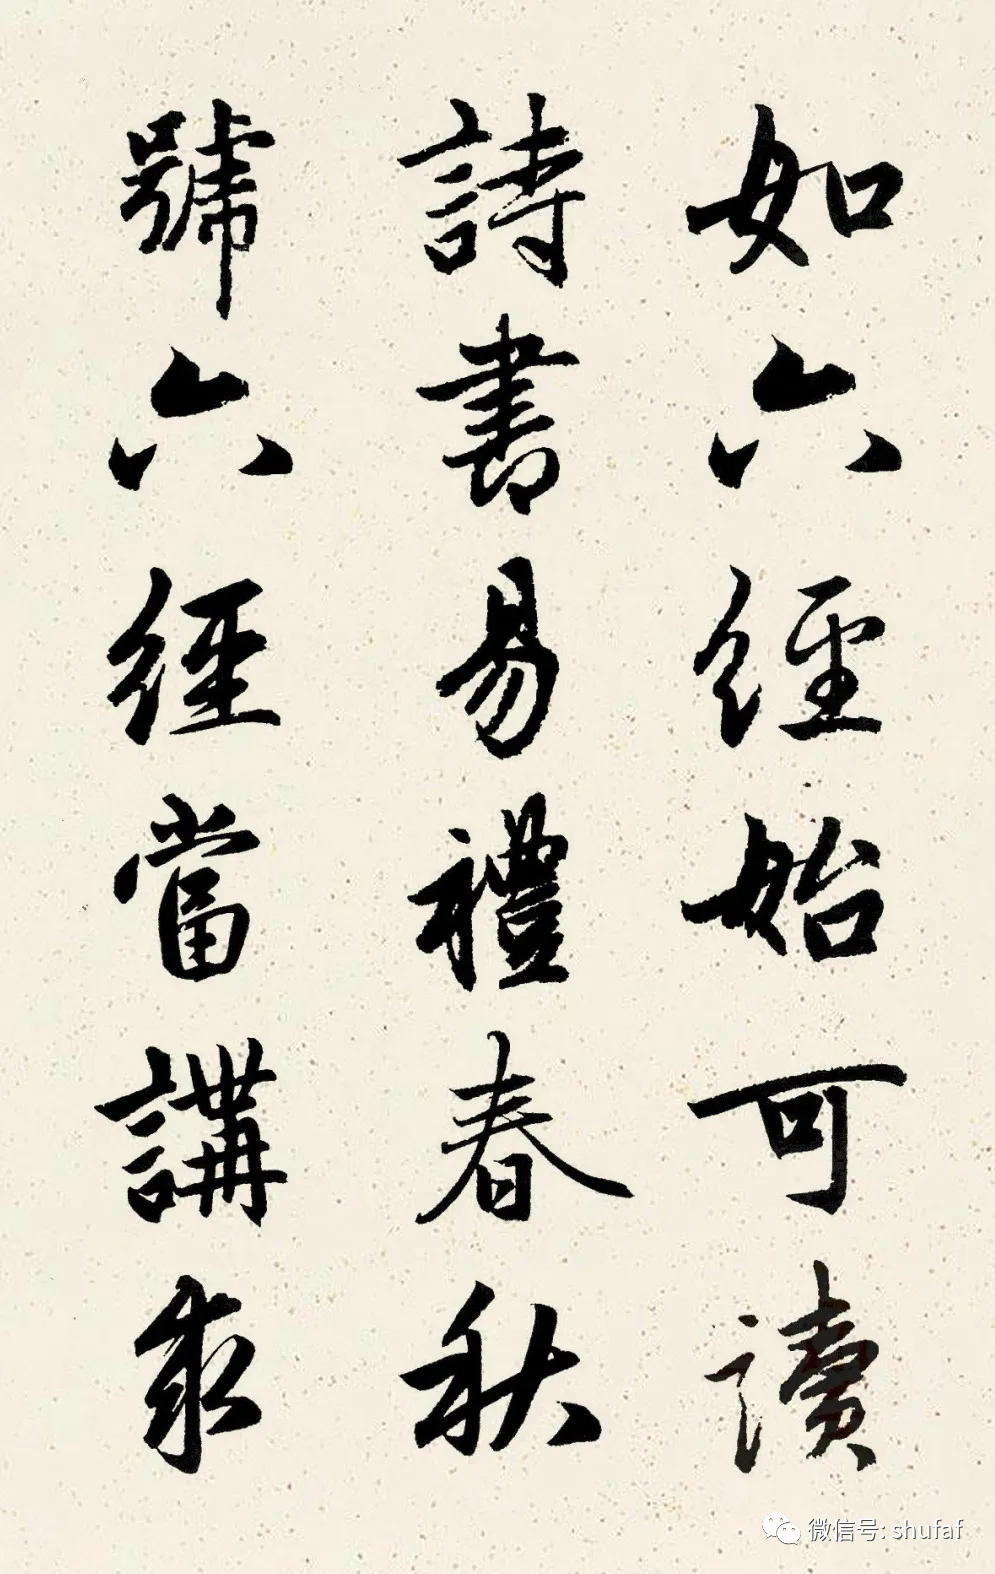 如六經始可讀
詩書易禮春秋
號六經當講求
微信号: shufaf